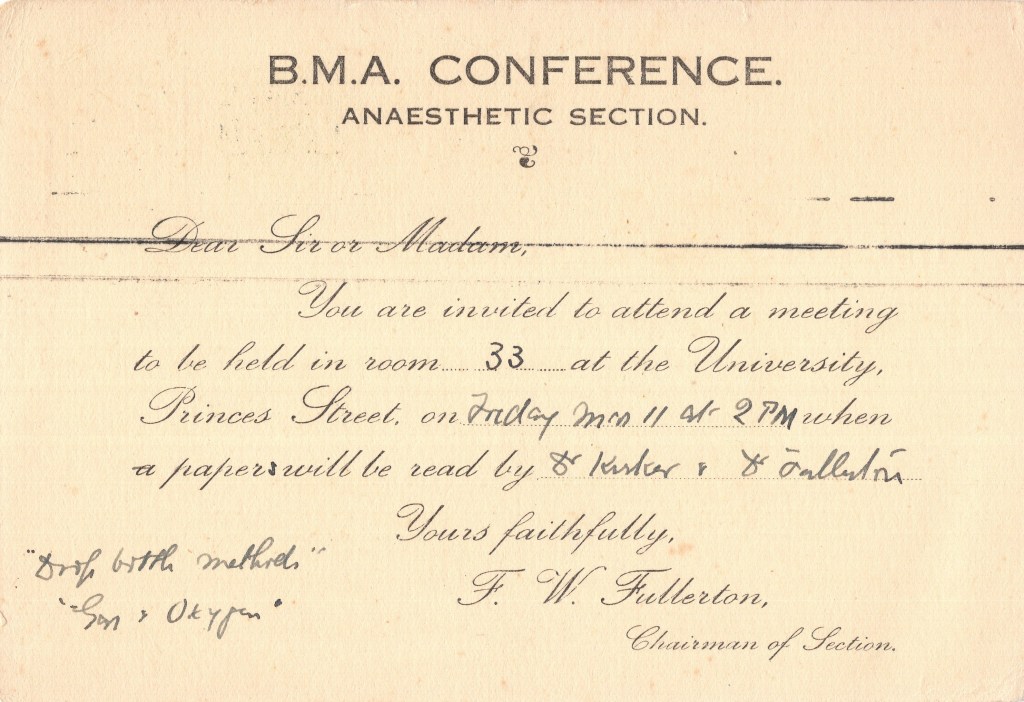 B.M.A. CONFERENCE.
ANAESTHETIC SECTION.
Dear Sir or Madam,
You are invited to attend a meeting
to be held in room 33 at the University,
Princes Street, on Friday 11 at 2 PM when
a papers will be read by Dr & Dr Fullerton
Yours faithfully,
F. W. Fullerton,
Chairman of Section.
"Drop bottle methods"
"Gas & Oxygen"